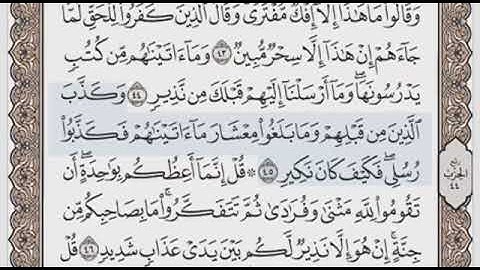 وَقَالُوا۟ مَا هَـٰذَآ إِلَّآ إِفْكٌ مُّفْتَرًى وَقَالَ ٱلَّذِينَ كَفَرُوا۟ لِلْحَقِّ لَمَّا
جَآءَهُمْ إِنْ هَـٰذَآ إِلَّا سِحْرٌ مُّبِينٌ ٤٣ وَمَآ ءَاتَيْنَـٰهُم مِّن كُتُبٍ
يَدْرُسُونَهَا ۖ وَمَآ أَرْسَلْنَآ إِلَيْهِمْ قَبْلَكَ مِن نَّذِيرٍ ٤٤ وَكَذَّبَ
ٱلَّذِينَ مِن قَبْلِهِمْ وَمَا بَلَغُوا۟ مِعْشَارَ مَآ ءَاتَيْنَـٰهُمْ فَكَذَّبُوا۟
رُسُلِى ۖ فَكَيْفَ كَانَ نَكِيرِ ٤٥ ۞ قُلْ إِنَّمَآ أَعِظُكُم بِوَٰحِدَةٍ ۖ أَن
تَقُومُوا۟ لِلَّهِ مَثْنَىٰ وَفُرَٰدَىٰ ثُمَّ تَتَفَكَّرُوا۟ ۚ مَا بِصَاحِبِكُم مِّن
جِنَّةٍ ۚ إِنْ هُوَ إِلَّا نَذِيرٌ لَّكُم بَيْنَ يَدَىْ عَذَابٍ شَدِيدٍ ٤٦ قُلْ
ربع
الحزب
٤٤